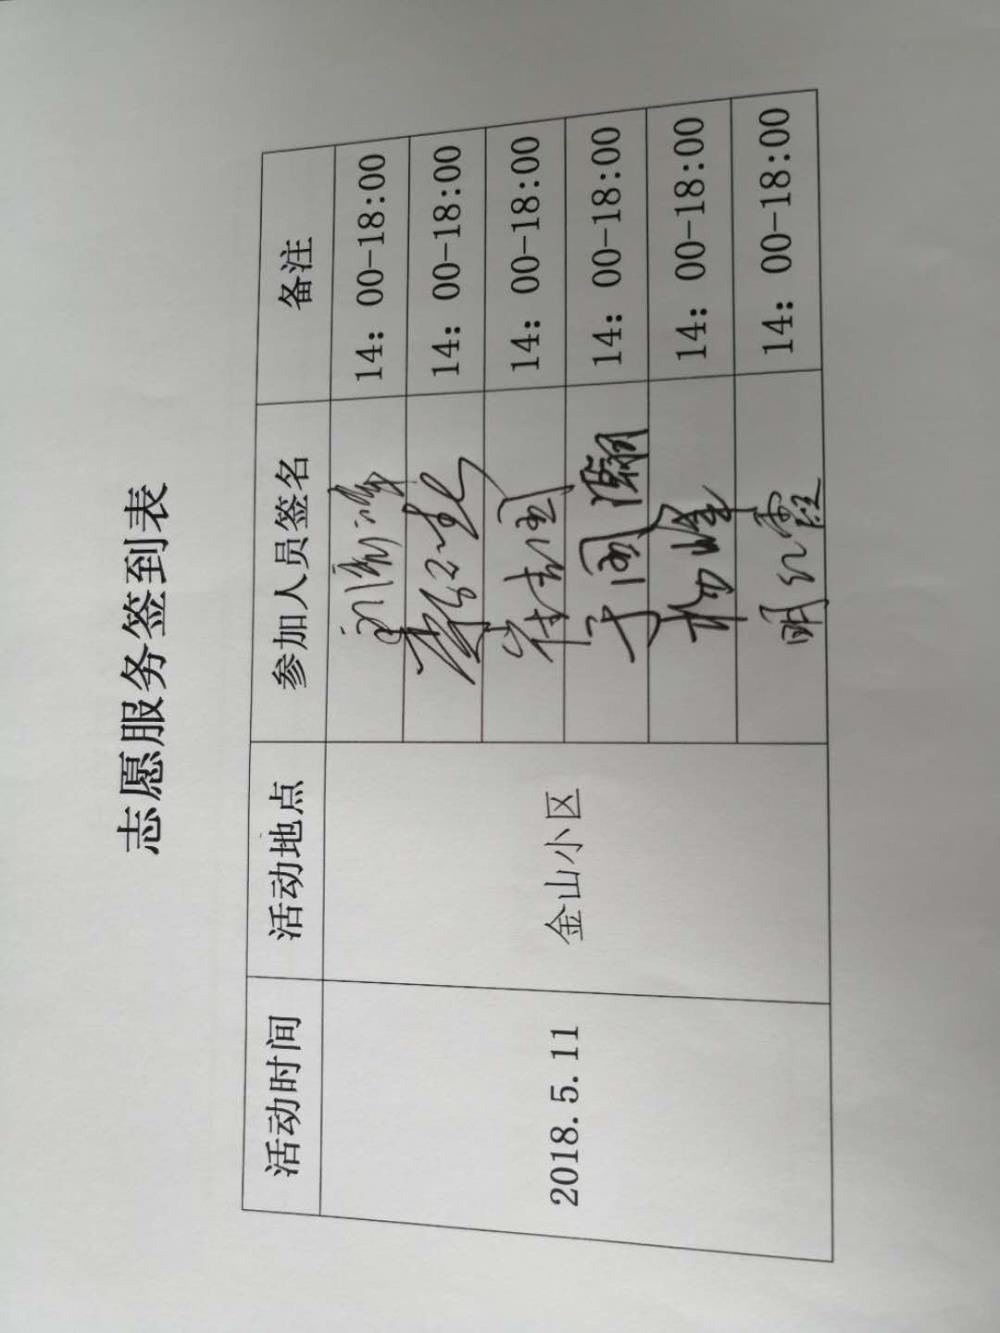 志愿服务签到表
活动时间 活动地点 参加人员签名 备注
2018.5.11 金山小区
14：00-18:00
14：00-18:00
14：00-18:00
于国灏 14：00-18:00
杨峰 14：00-18:00
明红霞 14：00-18:00